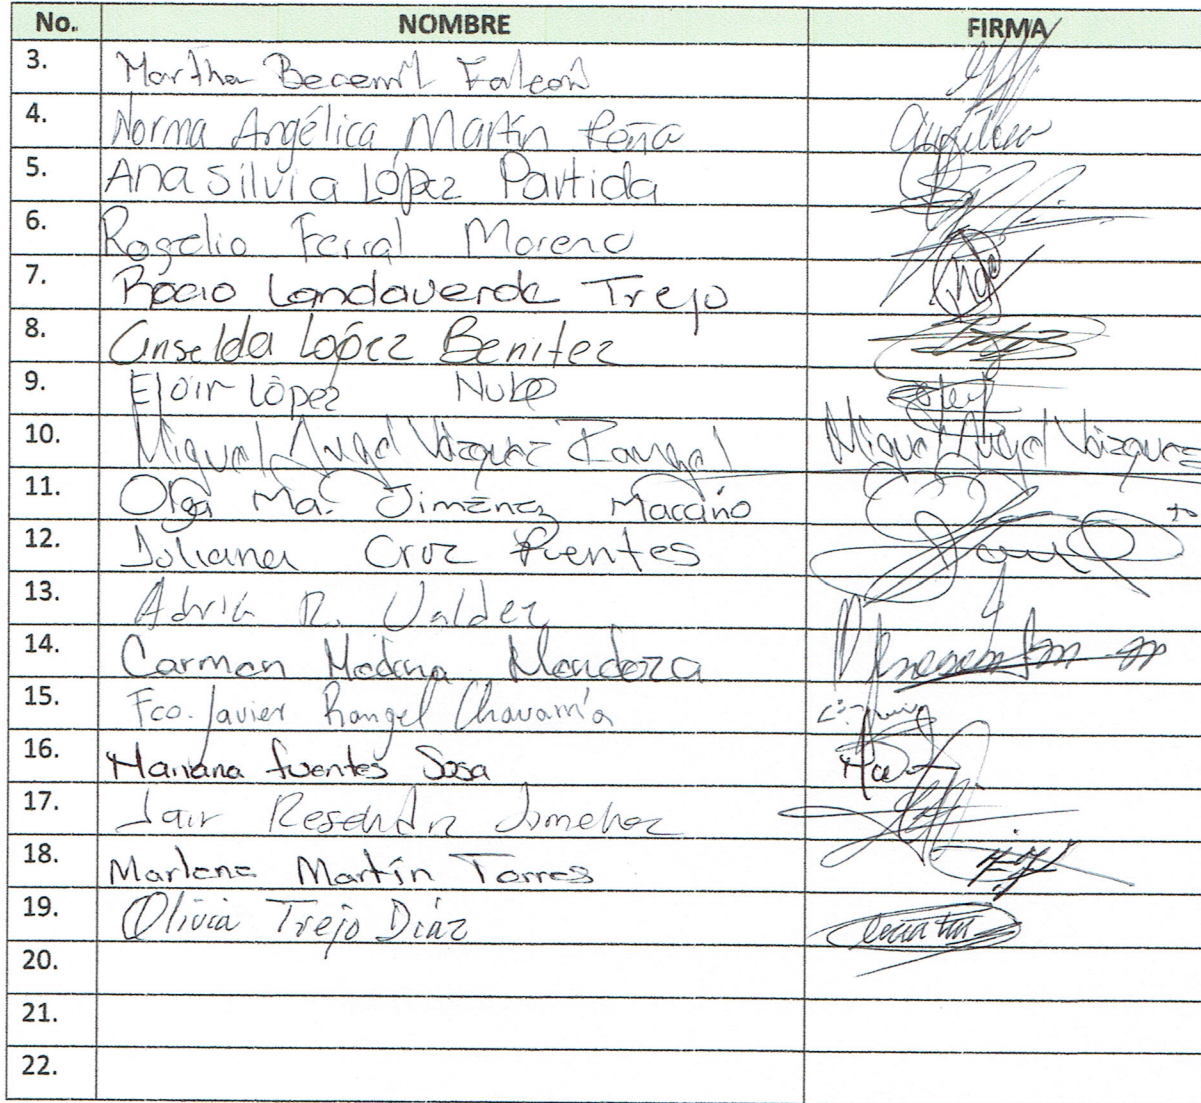 No. NOMBRE FIRMA
3. Martha Becerril Falcón
4. Norma Angélica Martín Peña
5. Ana silvia López Partida
6. Rogelio Ferral Moreno
7. Rocio Landaverde Trejo
8. Griselda López Benitez
9. Eloir López
10. Miguel Angel Vázquez Rangel Miguel Angel Vázquez
11. Olga Ma. Jiménez
12. Juliana Cruz Fuentes
13. Adriá R. Valdez
14. Carmen Medina Mendoza
15. Fco. Javier Rangel Chavarría
16. Mariana fuentes Sosa
17. Jair Resendiz Jimenez
18. Marlene Martín Torres
19. Olivia Trejo Díaz
20.
21.
22.